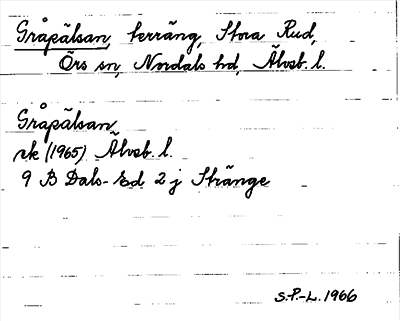 Gråpälsan, terräng, Stora Rud,
Örs sn, Nordals hd, Älvsb. l.
Gråpälsan
rk (1965) Älvsb. l.
9 B Dals-Ed 2 j Stränge
S.P.-L. 1966